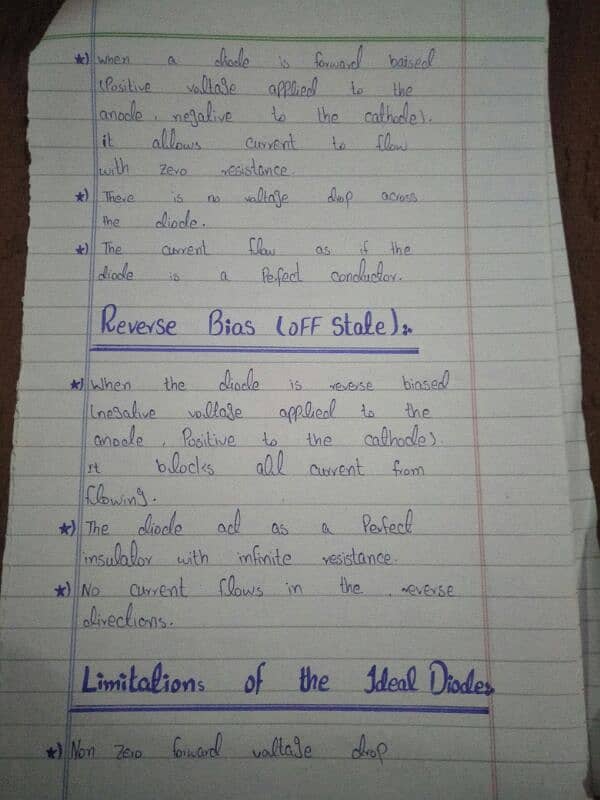 *) when a diode is forward baised
(Positive voltage applied to the
anode, negative to the cathode).
it allows current to flow
with zero resistance.
*) There is no voltage drop across
the diode.
*) The current flow as if the
diode is a Perfect conductor.
Reverse Bias (OFF State):-
*) When the diode is reverse biased
(negative voltage applied to the
anode, Positive to the cathode).
It blocks all current from
flowing.
*) The diode act as a Perfect
insulator with infinite resistance.
*) No current flows in the reverse
directions.
Limitations of the Ideal Diode:
*) Non Zero forward voltage drop